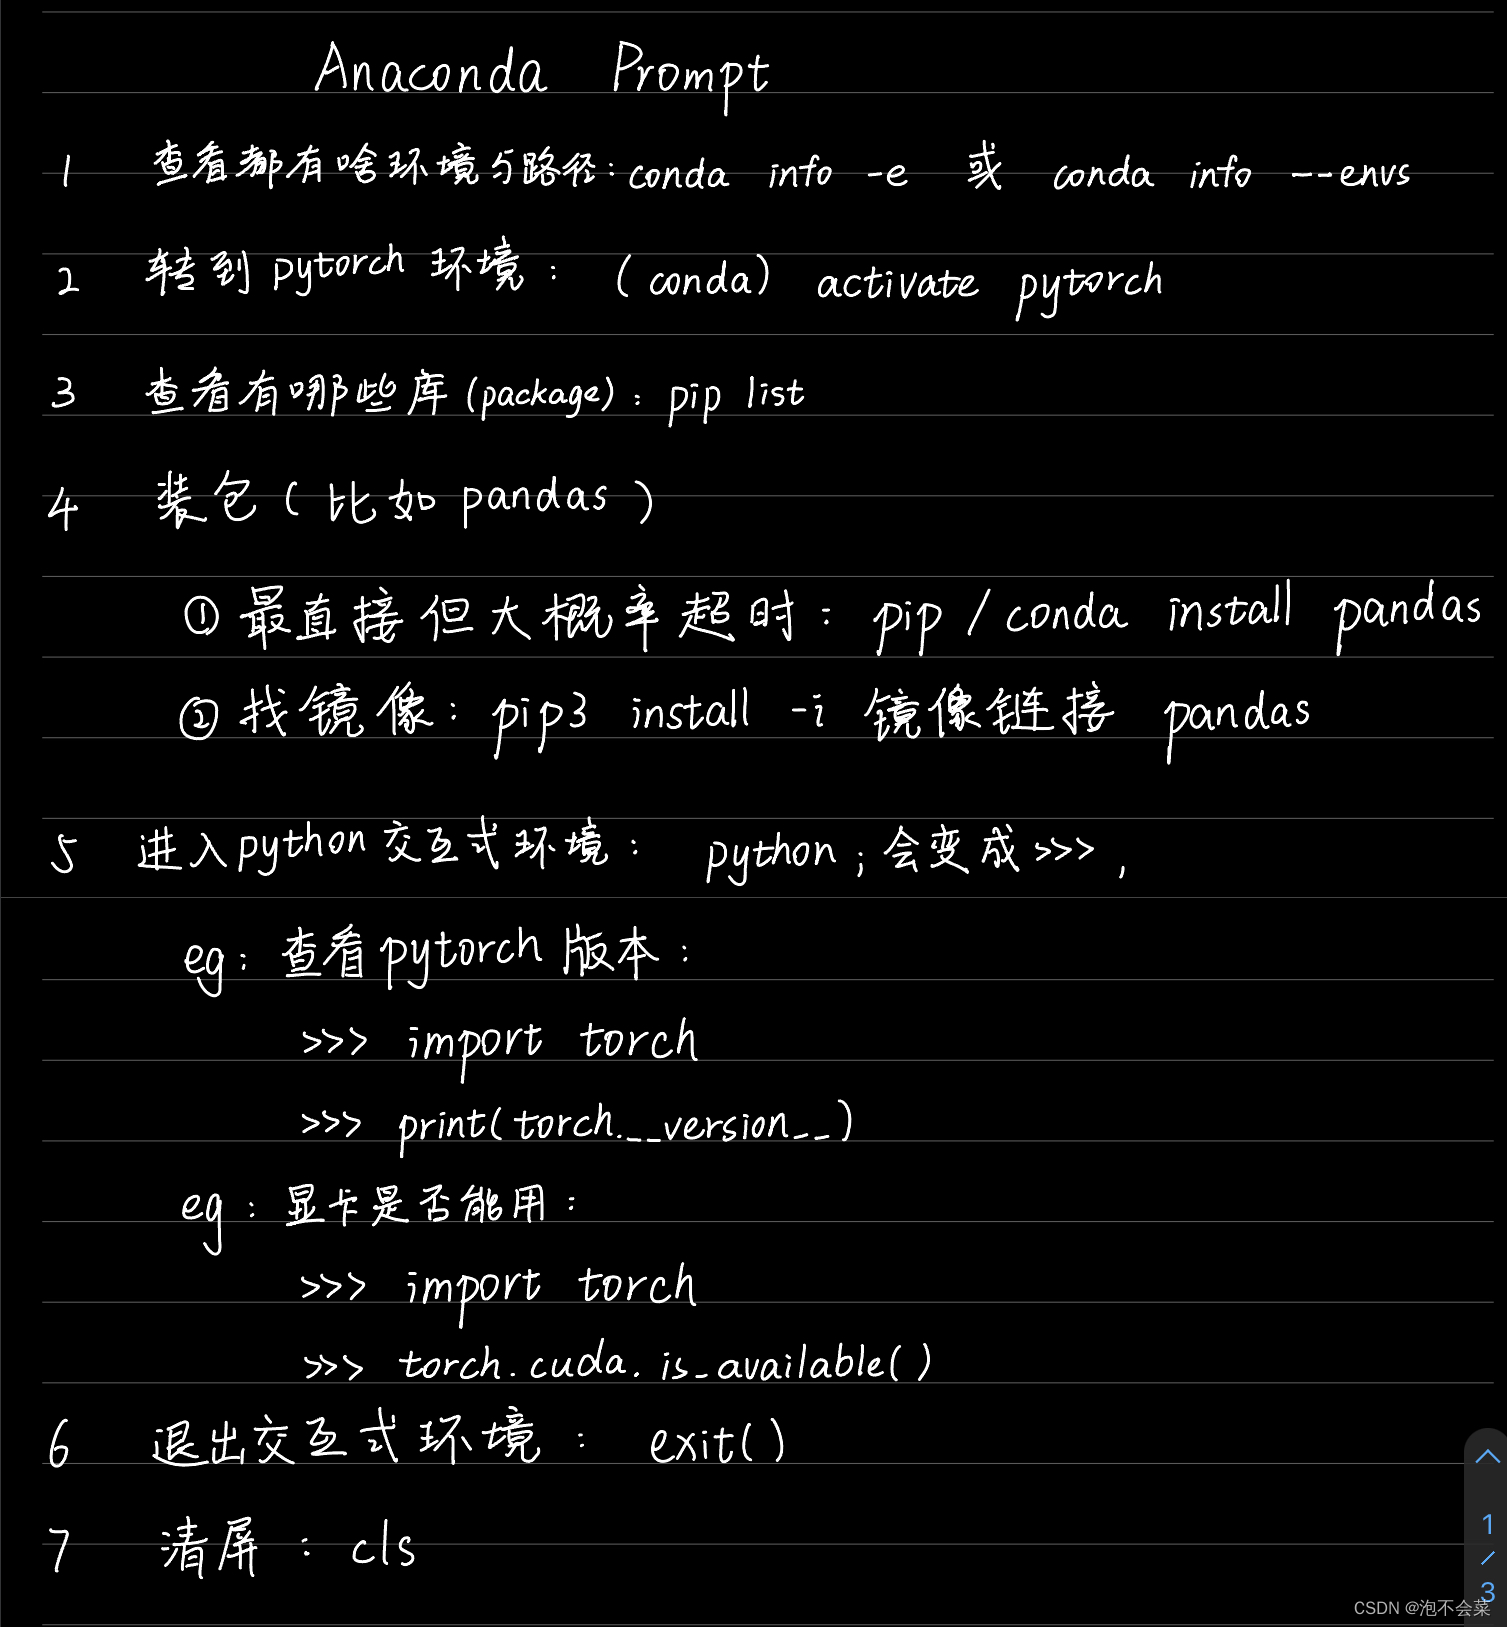 Anaconda Prompt
1 查看都有啥环境与路径：conda info -e 或 conda info --envs
2 转到 pytorch 环境：(conda) activate pytorch
3 查看有哪些库(package)：pip list
4 装包(比如 pandas)
① 最直接但大概率超时：pip / conda install pandas
② 找镜像：pip3 install -i 镜像链接 pandas
5 进入python交互式环境：python；会变成>>>，
eg：查看pytorch版本：
>>> import torch
>>> print(torch.__version__)
eg：显卡是否能用：
>>> import torch
>>> torch.cuda.is_available()
6 退出交互式环境：exit()
7 清屏：cls
1
/
3
CSDN @泡不会菜